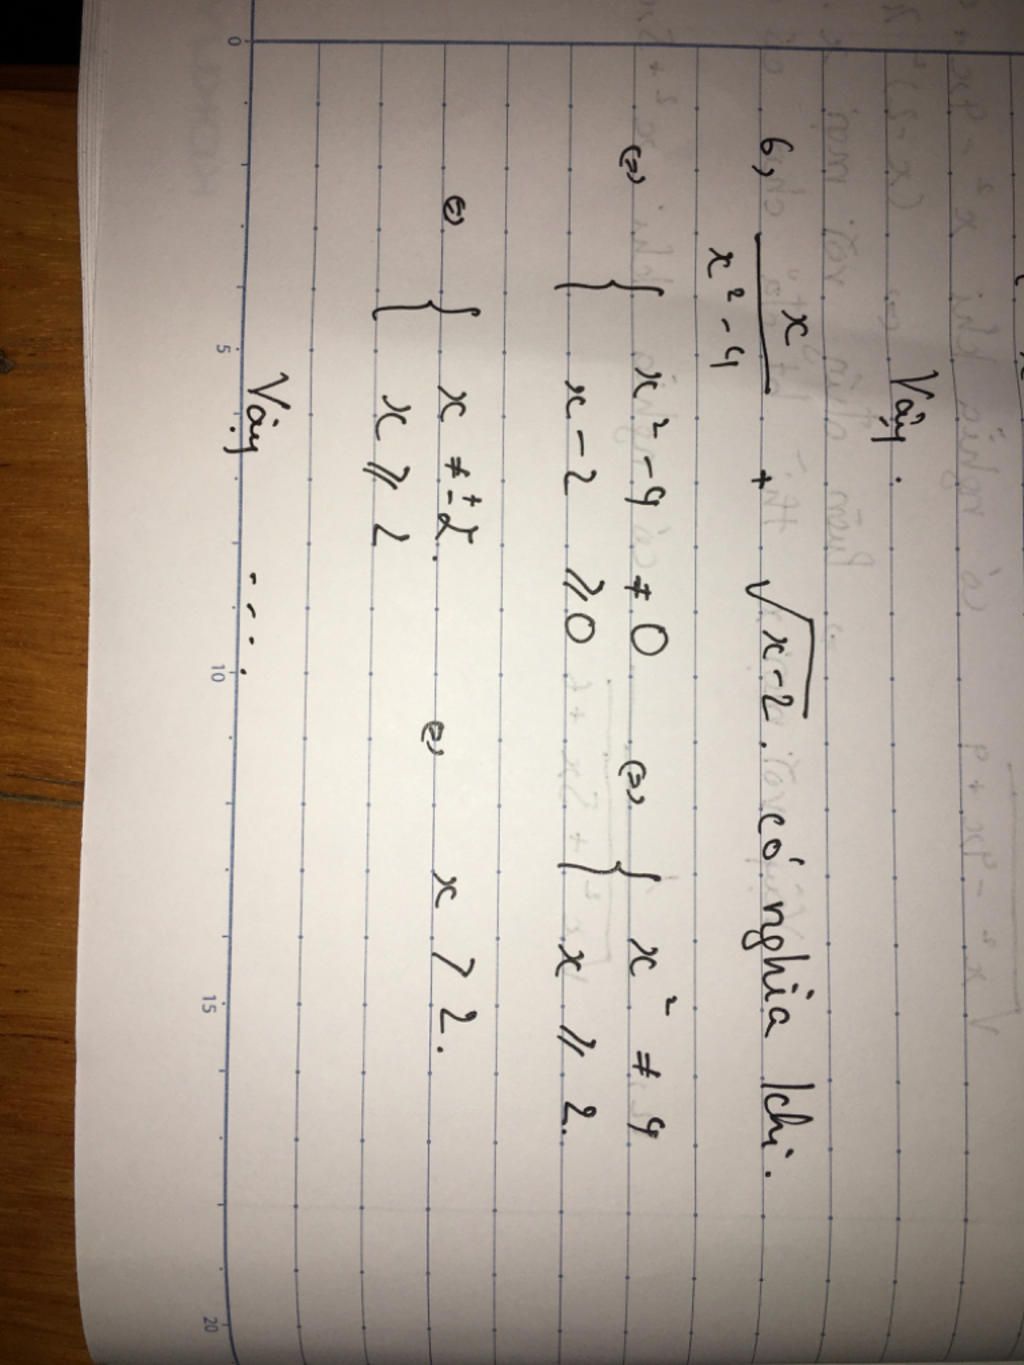 Vậy.
6, x / x² - 4 + √x-2. có nghĩa khi.
(=) { x² - 4 ≠ 0 (=) { x² ≠ 4
x - 2 ⩾ 0 x ⩾ 2.
(=) { x ≠ ±2. (=) x > 2.
x ⩾ 2
Vậy ....
0 5 10 15 20